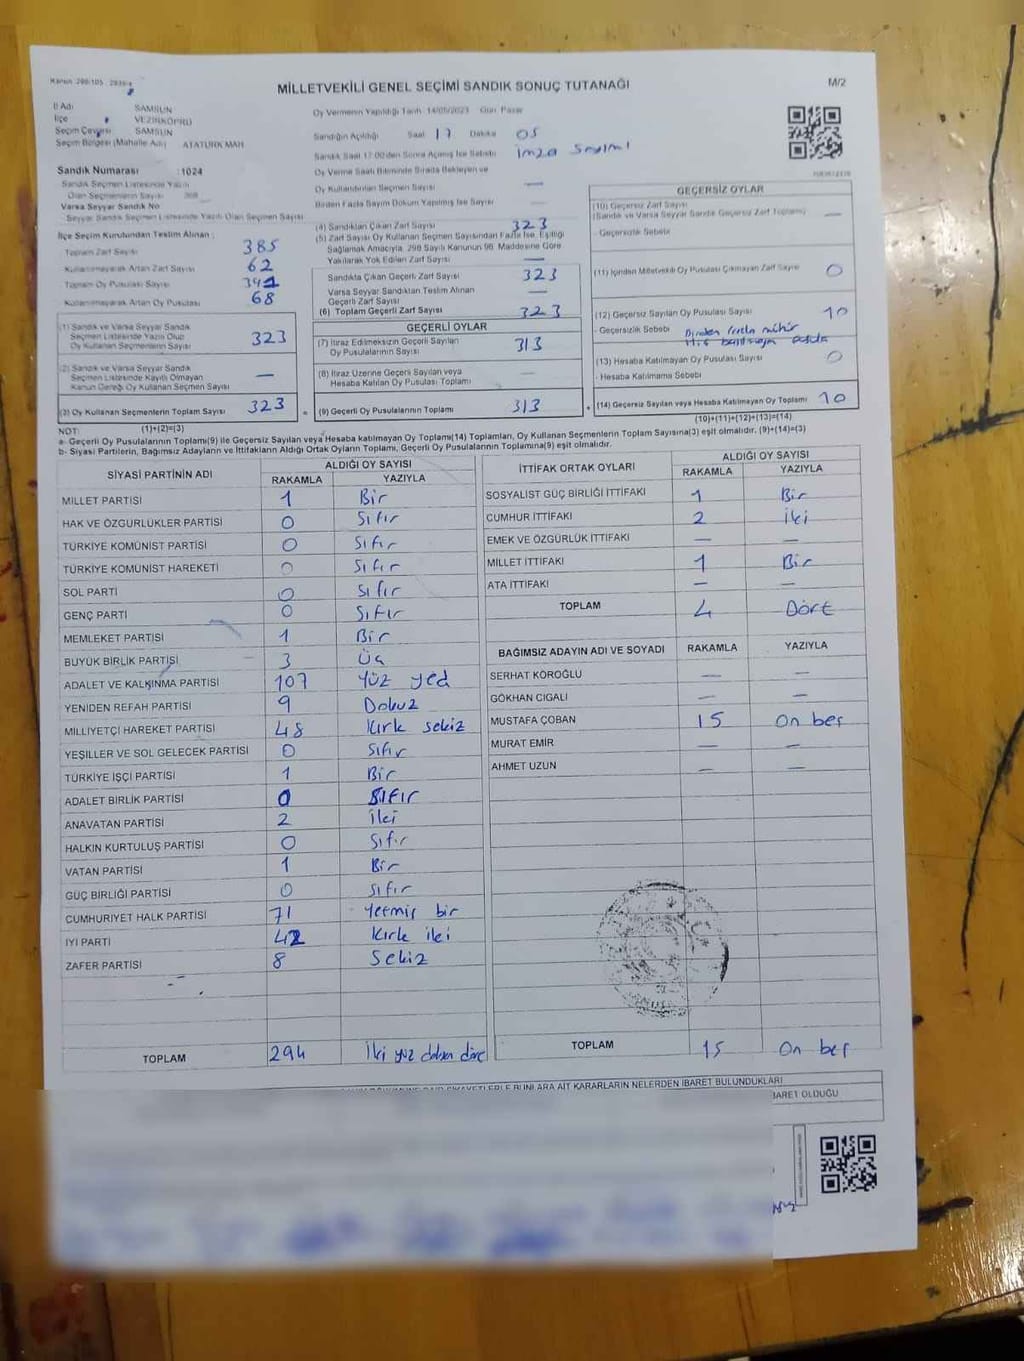 MİLLETVEKİLİ GENEL SEÇİMİ SANDIK SONUÇ TUTANAĞI
M/2
İl Adı SAMSUN
İlçe VEZİRKÖPRÜ
Seçim Çevresi SAMSUN
Seçim Bölgesi (Mahalle Adı) ATATÜRK MAH
Sandık Numarası :1024
Sandık Seçmen Listesinde Yazılı
Olan Seçmenlerin Sayısı
Varsa Seyyar Sandık No
Seyyar Sandık Seçmen Listesinde Yazılı Olan Seçmen Sayısı
Oy Vermenin Yapıldığı Tarih 14/05/2023 Gün Pazar
Sandığın Açıldığı Saat 17 Dakika 05
Sandık Saat 17:00'den Sonra Açılmış İse Sebebi imza sayımı
Oy Verme Saati Bitiminde Sırada Bekleyen ve
Oy Kullandırılan Seçmen Sayısı —
Birden Fazla Sayım Döküm Yapılmış İse Sayısı —
İlçe Seçim Kurulundan Teslim Alınan :
Toplam Zarf Sayısı 385
Kullanılmayarak Artan Zarf Sayısı 62
Toplam Oy Pusulası Sayısı 391
Kullanılmayarak Artan Oy Pusulası 68
(1) Sandık ve Varsa Seyyar Sandık
Seçmen Listesinde Yazılı Olup
Oy Kullanan Seçmenlerin Sayısı 323
(2) Sandık ve Varsa Seyyar Sandık
Seçmen Listesinde Kayıtlı Olmayan
Kanun Gereği Oy Kullanan Seçmen Sayısı —
(3) Oy Kullanan Seçmenlerin Toplam Sayısı 323
(4) Sandıktan Çıkan Zarf Sayısı 323
(5) Zarf Sayısı Oy Kullanan Seçmen Sayısından Fazla İse, Eşitliği
Sağlamak Amacıyla, 298 Sayılı Kanunun 98. Maddesine Göre
Yakılarak Yok Edilen Zarf Sayısı —
Sandıkta Çıkan Geçerli Zarf Sayısı 323
Varsa Seyyar Sandıktan Teslim Alınan
Geçerli Zarf Sayısı —
(6) Toplam Geçerli Zarf Sayısı 323
GEÇERLİ OYLAR
(7) İtiraz Edilmeksizin Geçerli Sayılan
Oy Pusulalarının Sayısı 313
(8) İtiraz Üzerine Geçerli Sayılan veya
Hesaba Katılan Oy Pusulası Toplamı —
(9) Geçerli Oy Pusulalarının Toplamı 313
GEÇERSİZ OYLAR
(10) Geçersiz Zarf Sayısı
(Sandık ve Varsa Seyyar Sandık Geçersiz Zarf Toplamı) —
- Geçersizlik Sebebi
(11) İçinden Milletvekili Oy Pusulası Çıkmayan Zarf Sayısı 0
(12) Geçersiz Sayılan Oy Pusulası Sayısı 10
- Geçersizlik Sebebi Birden fazla mühür
Hiç
(13) Hesaba Katılmayan Oy Pusulası Sayısı 0
- Hesaba Katılmama Sebebi
(14) Geçersiz Sayılan veya Hesaba Katılmayan Oy Toplamı 10
NOT: (1)+(2)=(3)
(10)+(11)+(12)+(13)=(14)
a- Geçerli Oy Pusulalarının Toplamı(9) ile Geçersiz Sayılan veya Hesaba katılmayan Oy Toplamı(14) Toplamları, Oy Kullanan Seçmenlerin Toplam Sayısına(3) eşit olmalıdır. (9)+(14)=(3)
b- Siyasi Partilerin, Bağımsız Adayların ve İttifakların Aldığı Ortak Oyların Toplamı, Geçerli Oy Pusulalarının Toplamına(9) eşit olmalıdır.
SİYASİ PARTİNİN ADI ALDIĞI OY SAYISI
RAKAMLA YAZIYLA
MİLLET PARTİSİ 1 Bir
HAK VE ÖZGÜRLÜKLER PARTİSİ 0 Sıfır
TÜRKİYE KOMÜNİST PARTİSİ 0 Sıfır
TÜRKİYE KOMÜNİST HAREKETİ 0 Sıfır
SOL PARTİ 0 Sıfır
GENÇ PARTİ 0 Sıfır
MEMLEKET PARTİSİ 1 Bir
BÜYÜK BİRLİK PARTİSİ 3 Üç
ADALET VE KALKINMA PARTİSİ 107 Yüz yedi
YENİDEN REFAH PARTİSİ 9 Dokuz
MİLLİYETÇİ HAREKET PARTİSİ 48 Kırk sekiz
YEŞİLLER VE SOL GELECEK PARTİSİ 0 Sıfır
TÜRKİYE İŞÇİ PARTİSİ 1 Bir
ADALET BİRLİK PARTİSİ 0 Sıfır
ANAVATAN PARTİSİ 2 iki
HALKIN KURTULUŞ PARTİSİ 0 Sıfır
VATAN PARTİSİ 1 Bir
GÜÇ BİRLİĞİ PARTİSİ 0 Sıfır
CUMHURİYET HALK PARTİSİ 71 Yetmiş bir
İYİ PARTİ 42 Kırk iki
ZAFER PARTİSİ 8 Sekiz
TOPLAM 294 İki yüz doksan dört
İTTİFAK ORTAK OYLARI ALDIĞI OY SAYISI
RAKAMLA YAZIYLA
SOSYALİST GÜÇ BİRLİĞİ İTTİFAKI 1 Bir
CUMHUR İTTİFAKI 2 iki
EMEK VE ÖZGÜRLÜK İTTİFAKI — —
MİLLET İTTİFAKI 1 Bir
ATA İTTİFAKI — —
TOPLAM 4 Dört
BAĞIMSIZ ADAYIN ADI VE SOYADI RAKAMLA YAZIYLA
SERHAT KÖROĞLU — —
GÖKHAN CIGALI — —
MUSTAFA ÇOBAN 15 On beş
MURAT EMİR — —
AHMET UZUN — —
TOPLAM 15 On beş
BUNLARA AİT KARARLARIN NELERDEN İBARET BULUNDUKLARI
BARET OLDUĞU